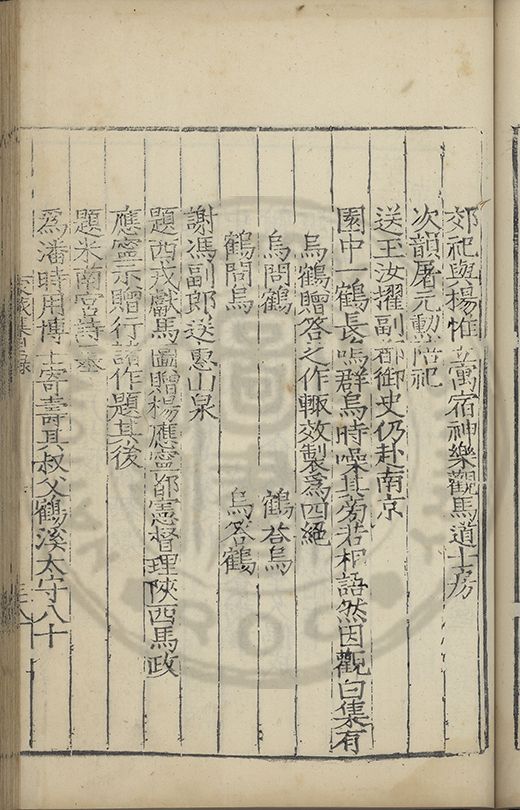 郊祀與楊惟立寓宿神樂觀馬道士房
次韻屠元勳陪祀
送王汝擢副都御史仍赴南京
園中一鶴長鳴群烏時噪其旁若相語然因觀白集有
烏鶴贈答之作輙效製爲四絕
烏問鶴 鶴荅烏
鶴問烏 烏荅鶴
謝馮副郎送惠山泉
題西戎獻馬圖贈楊應寧都憲督理陝西馬政
應寧示贈行諸作題其後
題米南宮詩
爲潘時用博士寄壽其叔父鶴溪太守八十